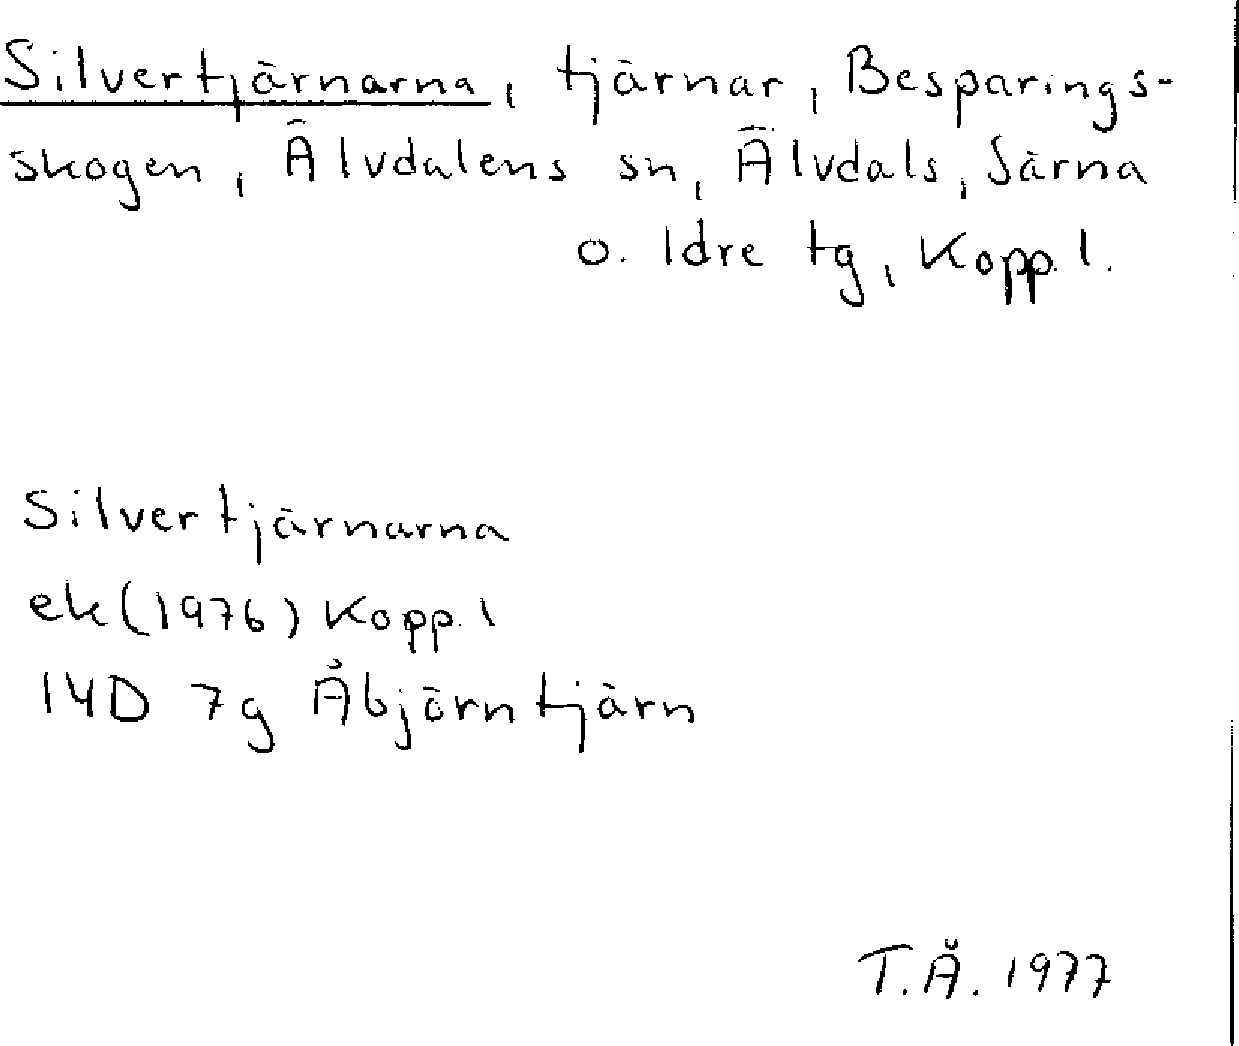 Silvertjärnarna, tjärnar, Besparings-
skogen, Älvdalens sn, Älvdals, Särna
o. Idre tg, Kopp. l.
Silvertjärnarna
ek (1976) Kopp. l
14D 7g Åbjörntjärn
T.Å. 1977